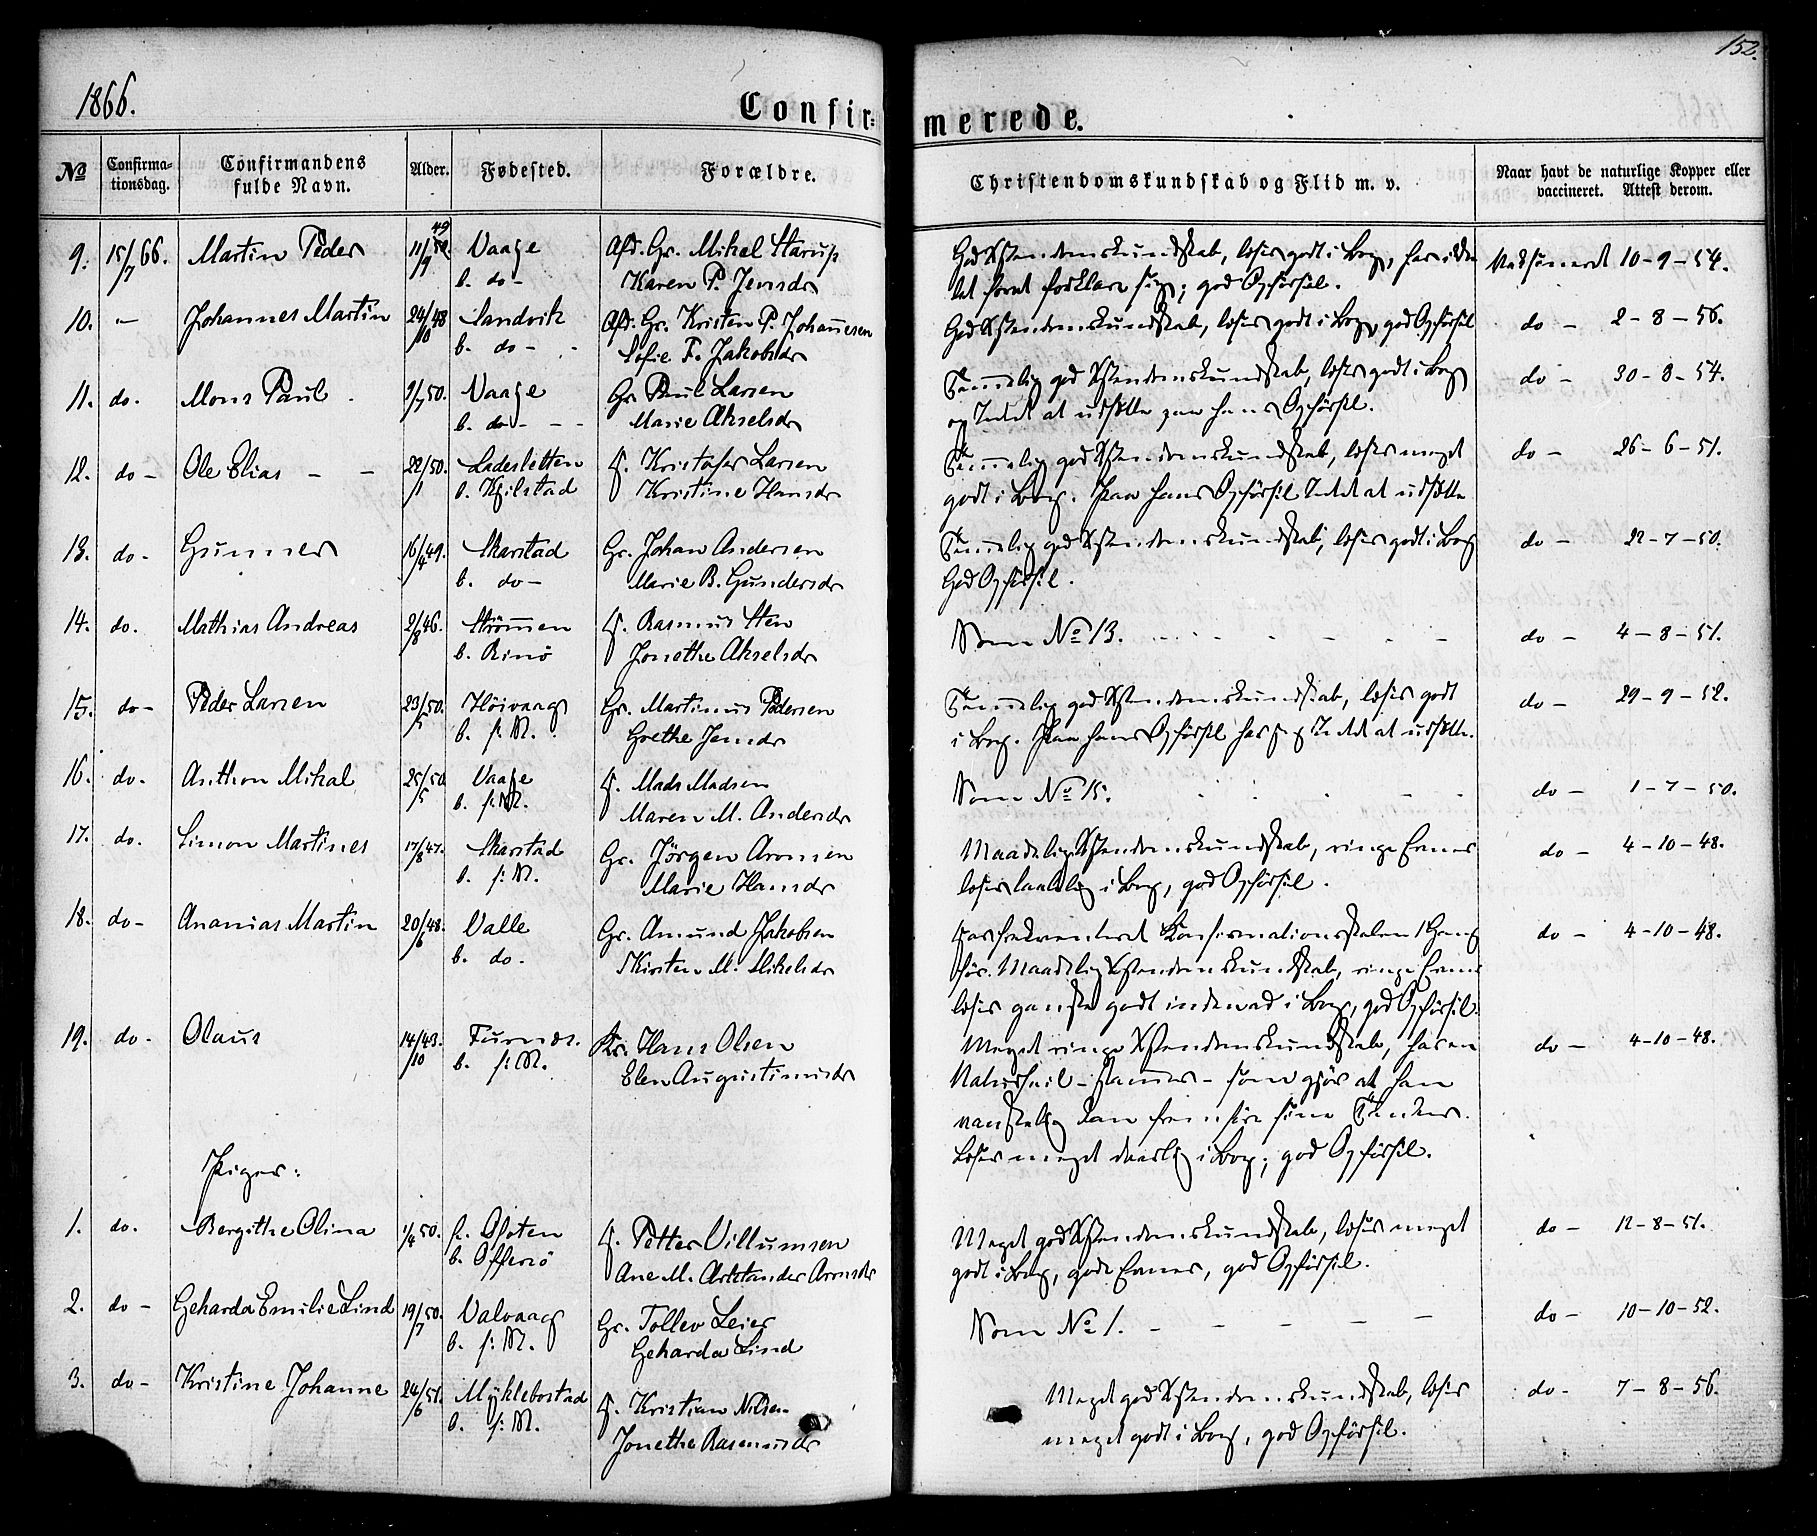 152.
1866.
Confir-
merede.
No
Confirma-
tionsdag.
Confirmandens
fulde Navn.
Alder.
Fødested.
Forældre.
Christendomskundskab og Flid m. v.
Naar havt de naturlige Kopper eller
vaccineret. Attest derom.
9. 15/7 66. Martin Peder 11/9 49 Vaage Afd. Gr. Mikal Harup
b. do - Karen P. Jensdr
God Xstendomskundskab, læser godt i Bog, har ikke
let forat forklare sig; god Opførsel.
Vaksineret 10-9-54.
10. - Johannes Martin 24/10 48 Sandvik Afd. Gr. Kristen P. Johannesen
b. do - Sofie F. Jakobsdr
God Xstendomskundskab, læser godt i Bog, god Opførsel
do - 2-8-56.
11. do. Mons Paul 9/7 50. Vaage Gr. Paul Larsen
b. do - - - Marie Akselsdr
Temmelig god Xstendomskundskab, læser godt i Bog
og Intet at udsætte paa hans Opførsel.
do - 30-8-54.
12. do - Ole Elias - - 22/1 50. Ladesletten I. Kristofer Larsen
b. Kjilstad Kristine Hansdr
Temmelig god Xstendomskundskab, læser meget
godt i Bog. Paa hans Opførsel Intet at udsætte
do - 26-6-51.
13. do - Gunner 16/4 49. Skarstad Gr. Johan Andersen
b. do - Marie B. Gundersdr
Temmelig god Xstendomskundskab, læser godt i Bog
God Opførsel.
do - 22-7-50.
14. do. Mathias Andreas 2/8 46. Strømmen I. Rasmus Sten
b. Rinø Jonethe Akselsdr
Som No 13.
do - 4-8-51.
15. do - Peder Larsen 23/5 50. Høivaag Gr. Martinus Pedersen
b. f: M. Grethe Jensdr
Temmelig god Xstendomskundskab, læser godt
i Bog. Paa hans Opførsel har jeg Intet at udsætte.
do - 29-9-52.
16. do. Anthon Mikal 25/5 50 Vaage I. Mads Madsen
b. f: M. Maren M. Andersdr
Som No 15.
do - 1-7-50.
17. do. Simon Martines 17/8 47. Skarstad Gr. Jørgen Aronsen
b. f: M. Marie Hansdr
Maadelig Xstendomskundskab, ringe Evner
læser taalelig i Bog, god Opførsel.
do - 4-10-48.
18. do - Ananias Martin 20/6 48. Valle Gr. Amund Jakobsen
b. do. Kirsten M. Mikelsdr
Har frekventeret Konfirmationsskolen 1 Gang
før. Maadelig Xstendomskundskab, ringe Evner
læser ganske godt indenad i Bog, god Opførsel.
do - 4-10-48.
19. do - Olaus 14/10 43. Turnes. Gr. Hans Olsen
b. f: M. Elen Augustinusdr
Meget ringe Xstendomskundskab, har en
Naturfeil - stammer - som gjør at han
vanskelig kan fremføre sine Tanker.
Læser meget daarlig i Bog; god Opførsel.
do - 4-10-48.
Piger:
1. do. Bergithe Olina 1/4 50. f. Ofoten I. Petter Villumsen
b. Offersø Ane M. Aronsdr
Meget god Xstendomskundskab, læser meget
godt i Bog, gode Evner, god Opførsel.
do - 12-8-51.
2. do - Geharda Emilie Lind 19/7 50. Valvaag Gr. Tollev Leier
b. f: M. Geharda Lind
Som No 1. - - - - -
do - 10-10-52.
3. do - Kristine Johanne 24/6 51. Myklebostad I. Kristian Nilsen
b. f: M. Jonethe Rasmusdr
Meget god Xstendomskundskab, læser
meget godt i Bog, god Opførsel.
do - 7-8-56.